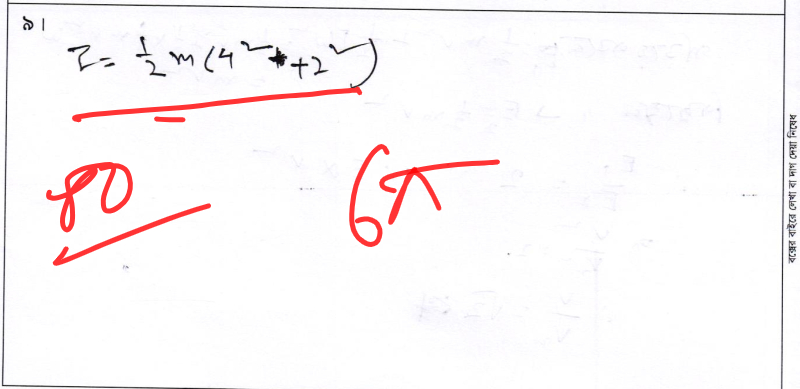 ৯।
I = ½ m (4² + 2²)
80
6π
বক্সের বাইরে লেখা বা দাগ দেয়া নিষেধ